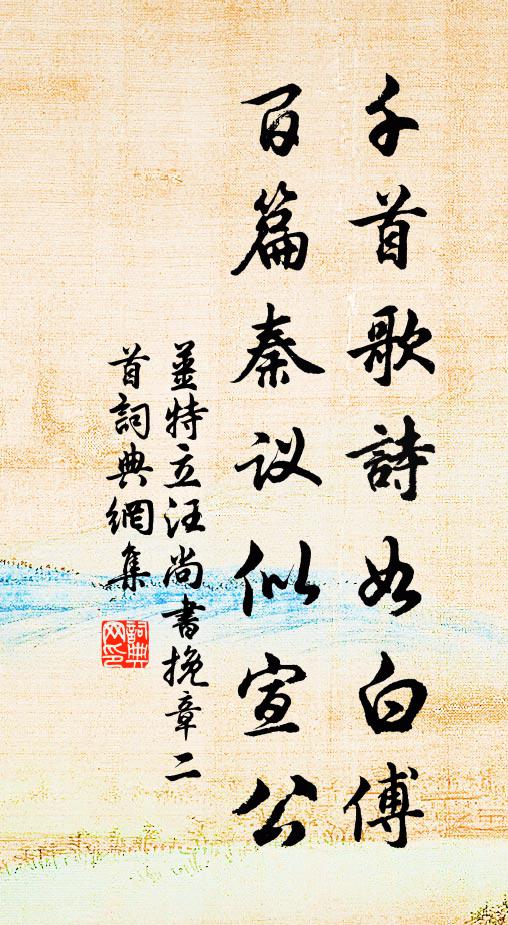 千首歌詩如白傅
百篇奏议似宣公
薑特立汪尚書挽章二
首詞典網集
詞典
网印